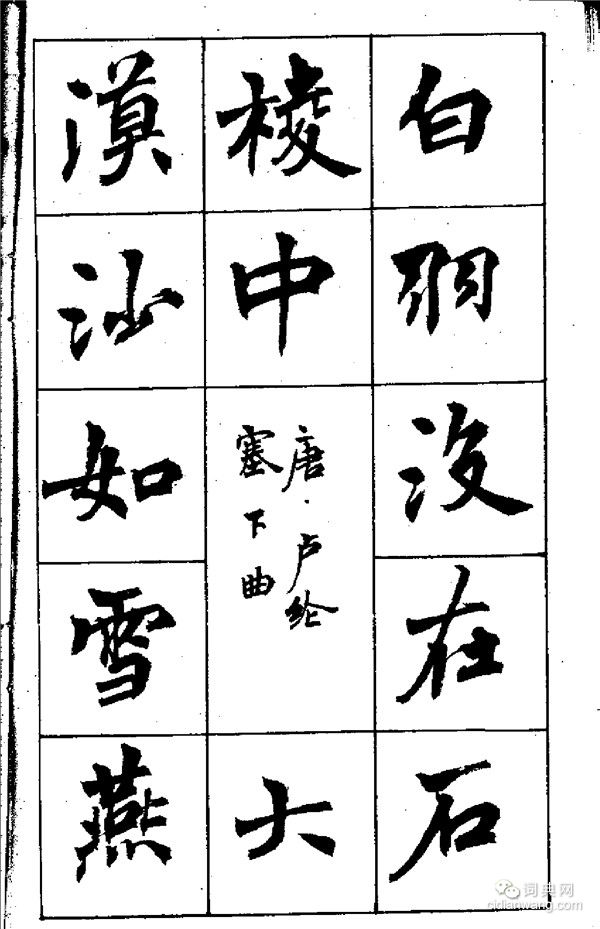 白羽没在石
棱中
唐·卢纶
塞下曲
大
漠沙如雪燕
词典网
cidianwang.com